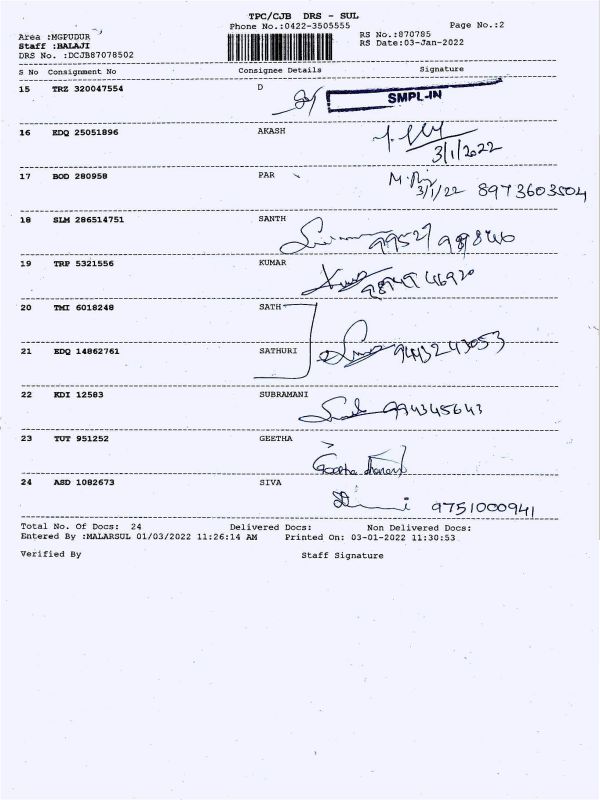 TPC/CJB DRS - SUL
Phone No.:0422-3505555 Page No.:2
Area :MGPUDUR RS No.:870785
Staff :BALAJI RS Date:03-Jan-2022
DRS No. :DCJB87078502
S No Consignment No Consignee Details Signature
15 TRZ 320047554 D SMPL-IN
16 EDQ 25051896 AKASH
3/1/2022
17 BOD 280958 PAR
3/1/22 8973603504
18 SLM 286514751 SANTH
19 TRP 5321556 KUMAR
20 TMI 6018248 SATH
21 EDQ 14862761 SATHURI 9443243053
22 KDI 12583 SUBRAMANI 994345643
23 TUT 951252 GEETHA
Geetha
24 ASD 1082673 SIVA
9751000941
Total No. Of Docs: 24 Delivered Docs: Non Delivered Docs:
Entered By :MALARSUL 01/03/2022 11:26:14 AM Printed On: 03-01-2022 11:30:53
Verified By Staff Signature